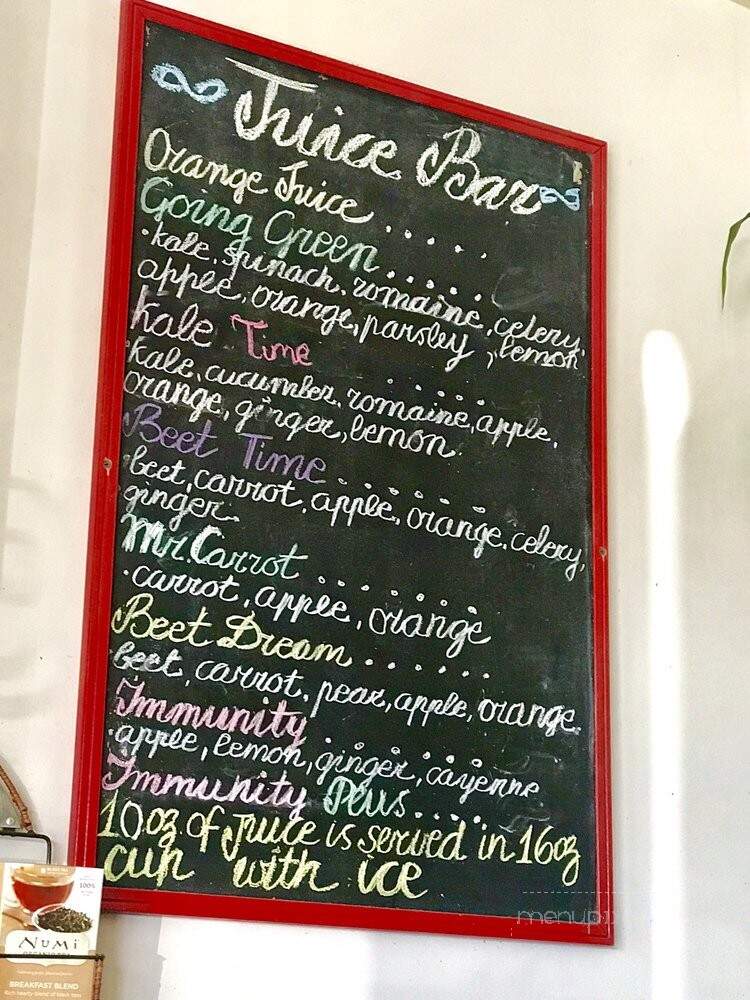 Juice Bar
Orange Juice .....
Going Green ......
·kale, spinach, romaine, celery,
apple, orange, parsley, lemon
Kale Time .....
·kale, cucumber, romaine, apple,
orange, ginger, lemon
Beet Time ......
·beet, carrot, apple, orange, celery,
ginger
Mr. Carrot .......
·carrot, apple, orange
Beet Dream ......
·beet, carrot, pear, apple, orange
Immunity .....
·apple, lemon, ginger, cayenne
Immunity Plus....
10oz of Juice is served in 16oz
cup with ice
100%
NUMI
BREAKFAST BLEND
menup